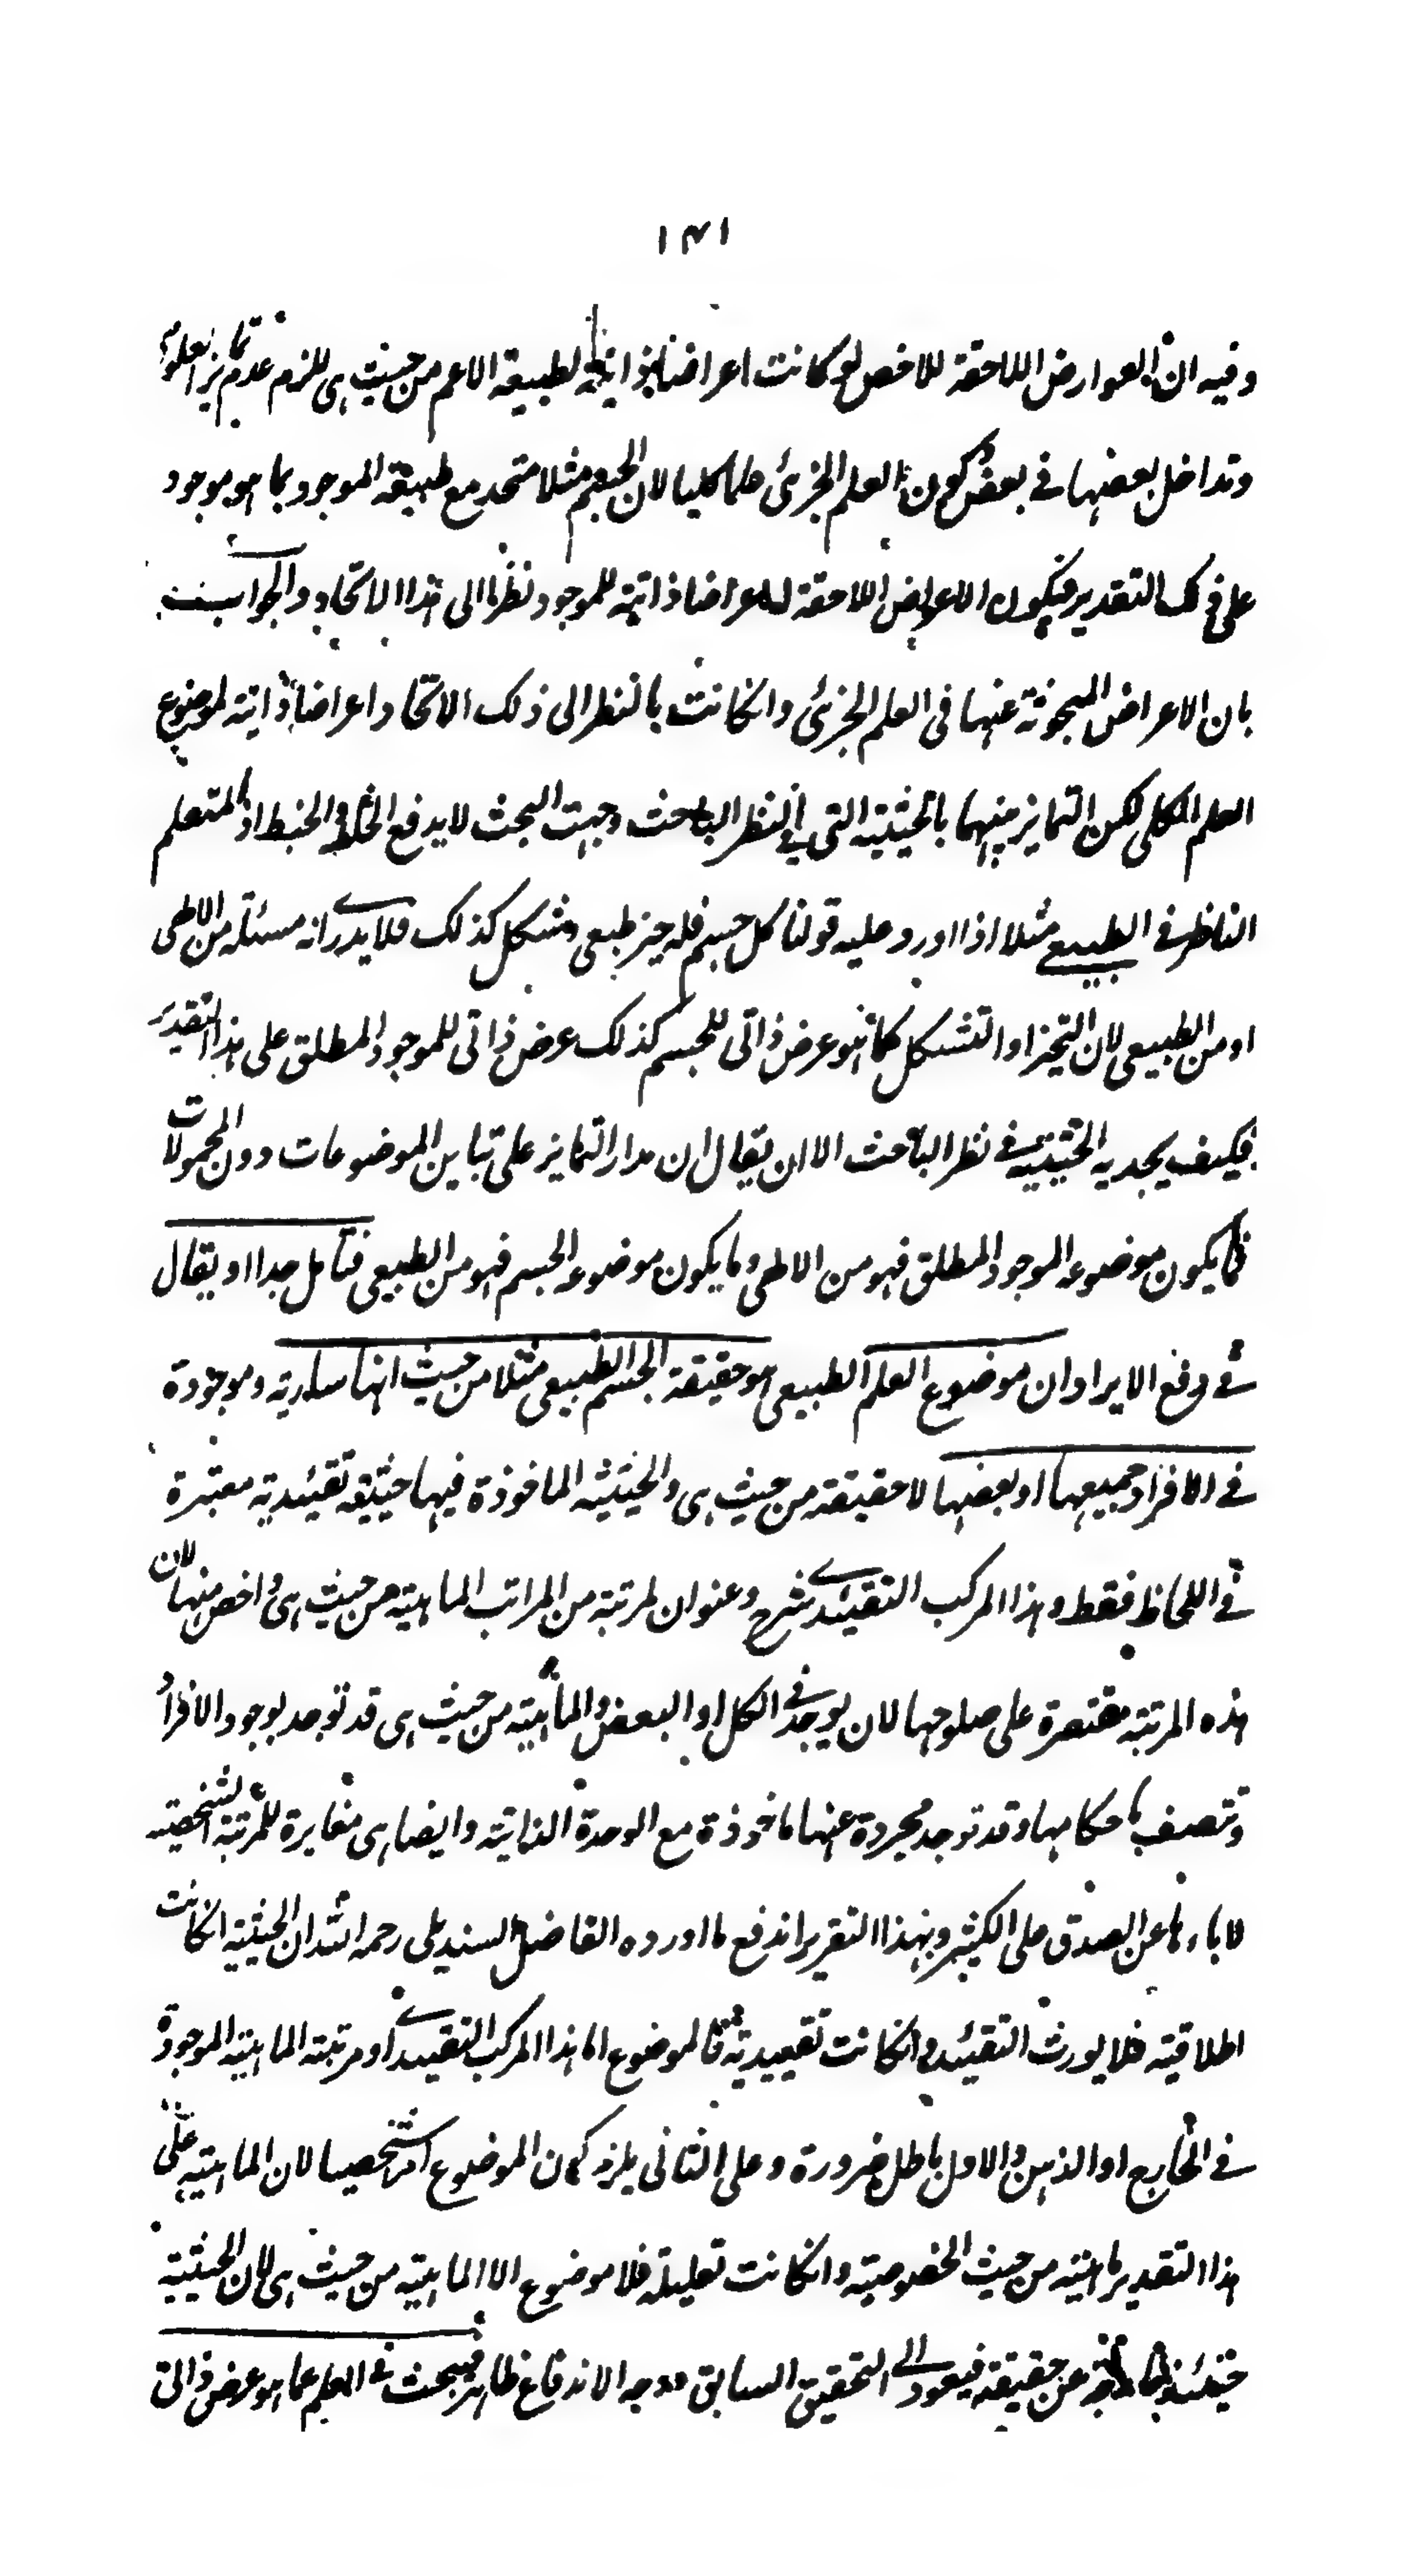 ١٣١
وفيه ان العوارض اللاحقة للاخص لو كانت اعراضا ذاتية لطبيعة الاعم من حيث هى للزم عدم تمايز العلوم
وتداخل بعضها فى بعض وكون العلم الجزئى علما كليا لان الجسم مثلا متحد مع طبيعة الموجود بما هو موجود
على ذلك التقدير فيكون الاعراض اللاحقة له اعراضا ذاتية للموجود نظرا الى هذا الاتحاد والجواب
بان الاعراض المبحوثة عنها فى العلم الجزئى وانكانت بالنظر الى ذلك الاتحاد اعراضا ذاتية لموضوع
العلم الكلى لكن التمايز بينهما بالحيثية التى فى نظر الباحث وجهت البحث لا يدفع الخلط والخبط اذ المتعلم
الناظر فى الطبيعى مثلا اذا اورد عليه قولنا كل جسم فله حيز طبعى وشكل كذلك فلا يدرى انه مسئلة من الالهى
او من الطبيعى لان التحيز او التشكل كما هو عرض ذاتى للجسم كذلك عرض ذاتى للموجود المطلق على هذا التقدير
فكيف يجديه الحيثية فى نظر الباحث الا ان يقال ان مدار التمايز على تباين الموضوعات دون المحمولات
فما يكون موضوعه الموجود المطلق فهو من الالهى وما يكون موضوعه الجسم فهو من الطبيعى فتامل جدا او يقال
فى دفع الايراد ان موضوع العلم الطبيعى هو حقيقة الجسم الطبيعى مثلا من حيث انها سارية وموجودة
فى الافراد جميعها او بعضها لا حقيقة من حيث هى والحيثية الماخوذة فيها حيثية تقئيدية معتبرة
فى اللحاظ فقط وهذا المركب التقئيدى شرح وعنوان لمرتبة من المراتب الماهية من حيث هى واخص منها لان
هذه المرتبة مقتصرة على صلوحها لان يوجد فى الكل او البعض والماهية من حيث هى قد توجد بوجود الافراد
وتتصف باحكامها وقد توجد مجردة عنها ماخوذة مع الوحدة الذاتية وايضا هى مغايرة للمرتبة الشخصية
لاباءها عن الصدق على الكثير وبهذا التقرير اندفع ما اورده الفاضل السنديلى رحمه الله ان الحيثية انكانت
اطلاقية فلا يورث التقئيد وانكانت تقييدية فالموضوع اما هذا المركب التقييدى او مرتبة الماهية الموجودة
فى الخارج او الذهن والاول باطل ضرورة وعلى الثانى يلزم كون الموضوع امرا شخصيا لان الماهية على
هذا التقدير ماهية من حيث الخصوصية وانكانت تعليلة فلا موضوع الا الماهية من حيث هى لان الحيثية
حينئذ خارجة عن حقيقة فيعود الى التحقيق السابق ووجه الاندفاع ظاهر فيبحث فى العلم عما هو عرض ذاتى